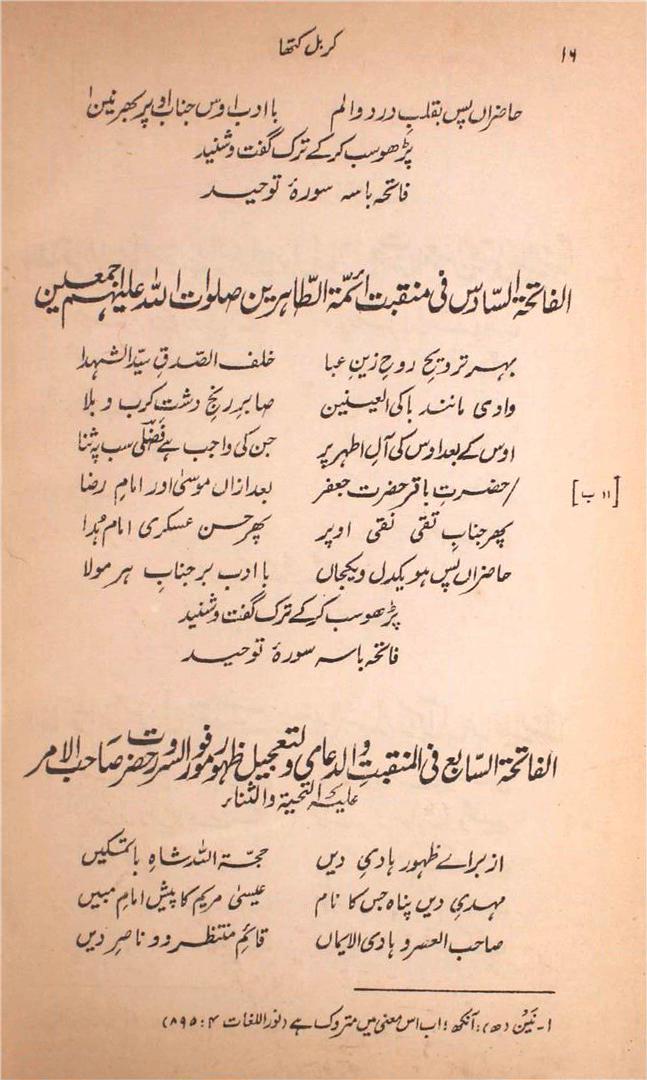 ۱۶ کربل کتھا
حاضراں پس بقلبِ درد و الم با ادب اوس جناب اوپر بھر نین۱
پڑھو سب کر کے ترک گفت و شنید
فاتحہ با سہ سورۂ توحید
الفاتحۃ السّادس فی منقبت ائمّۃ الطّاہرین صلوات اللہ علیہم اجمعین
بہر ترویحِ روحِ زینِ عبا خلف الصّدقِ سیّد الشہدا
وادی مانند باکی العینین صابرِ رنجِ دشتِ کرب و بلا
اوس کے بعد اوس کی آلِ اطہر پر جن کی واجب ہے فضلی سب پہ ثنا
/ حضرتِ باقر حضرت جعفر بعد ازاں موسیٰ اور امامِ رضا [۱۱ ب]
پھر جنابِ تقی نقی اوپر پھر حسن عسکری امامِ ہُدا
حاضراں پس ہو یکدل و یکجاں با ادب بر جنابِ ہر مولا
پڑھو سب کر کے ترک گفت و شنید
فاتحہ با سہ سورۂ توحید
الفاتحۃ السّابع فی المنقبتِ والدعای ولتعجیل ظہور موفور السرور حضرت صاحب الامر
علیہ التحیۃ والثناء
از براے ظہور ہادیِ دیں حجۃ اللہ شاہِ باتمکیں
مہدیِ دیں پناہ جس کا نام عیسیٰ مریم کا پیش امامِ مبیں
صاحب العصر و ہادی الایماں قائمِ منتظر و و ناصرِ دیں
۱۔ نَین (ھ): آنکھ؛ اب اس معنی میں متروک ہے (نور اللغات ۴: ۸۹۵)